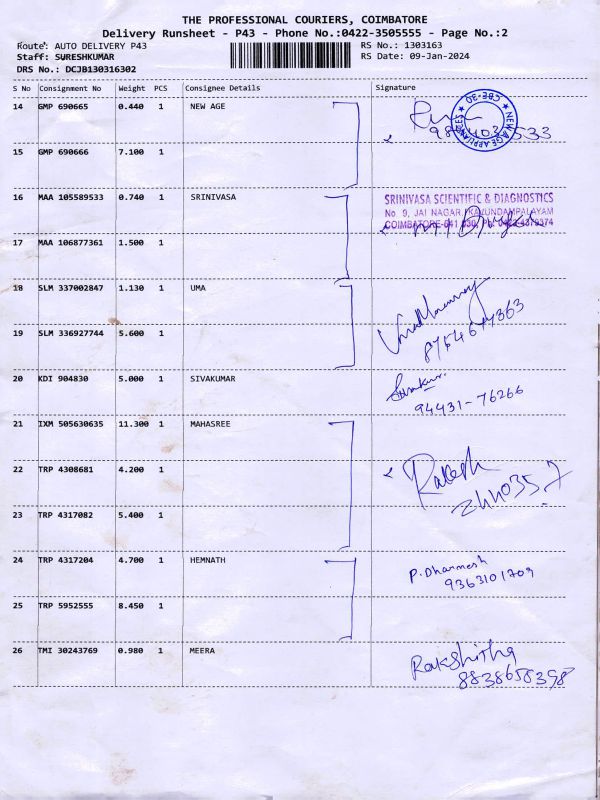 THE PROFESSIONAL COURIERS, COIMBATORE
Delivery Runsheet - P43 - Phone No.:0422-3505555 - Page No.:2
Route: AUTO DELIVERY P43 RS No.: 1303163
Staff: SURESHKUMAR RS Date: 09-Jan-2024
DRS No.: DCJB130316302
S No Consignment No Weight PCS Consignee Details Signature
14 GMP 690665 0.440 1 NEW AGE
NEW AGE APPLIANCES CBE-30
15 GMP 690666 7.100 1
16 MAA 105589533 0.740 1 SRINIVASA SRINIVASA SCIENTIFIC & DIAGNOSTICS
No. 9, JAI NAGAR, KAVUNDAMPALAYAM
COIMBATORE-641 030,
17 MAA 106877361 1.500 1
18 SLM 337002847 1.130 1 UMA
19 SLM 336927744 5.600 1
20 KDI 904830 5.000 1 SIVAKUMAR Sivakumar
94431-76266
21 IXM 505630635 11.300 1 MAHASREE
22 TRP 4308681 4.200 1 Rakesh
244035.7
23 TRP 4317082 5.400 1
24 TRP 4317204 4.700 1 HEMNATH P. Dharmesh
9363101709
25 TRP 5952555 8.450 1
26 TMI 30243769 0.980 1 MEERA Rakshitha
8838658398